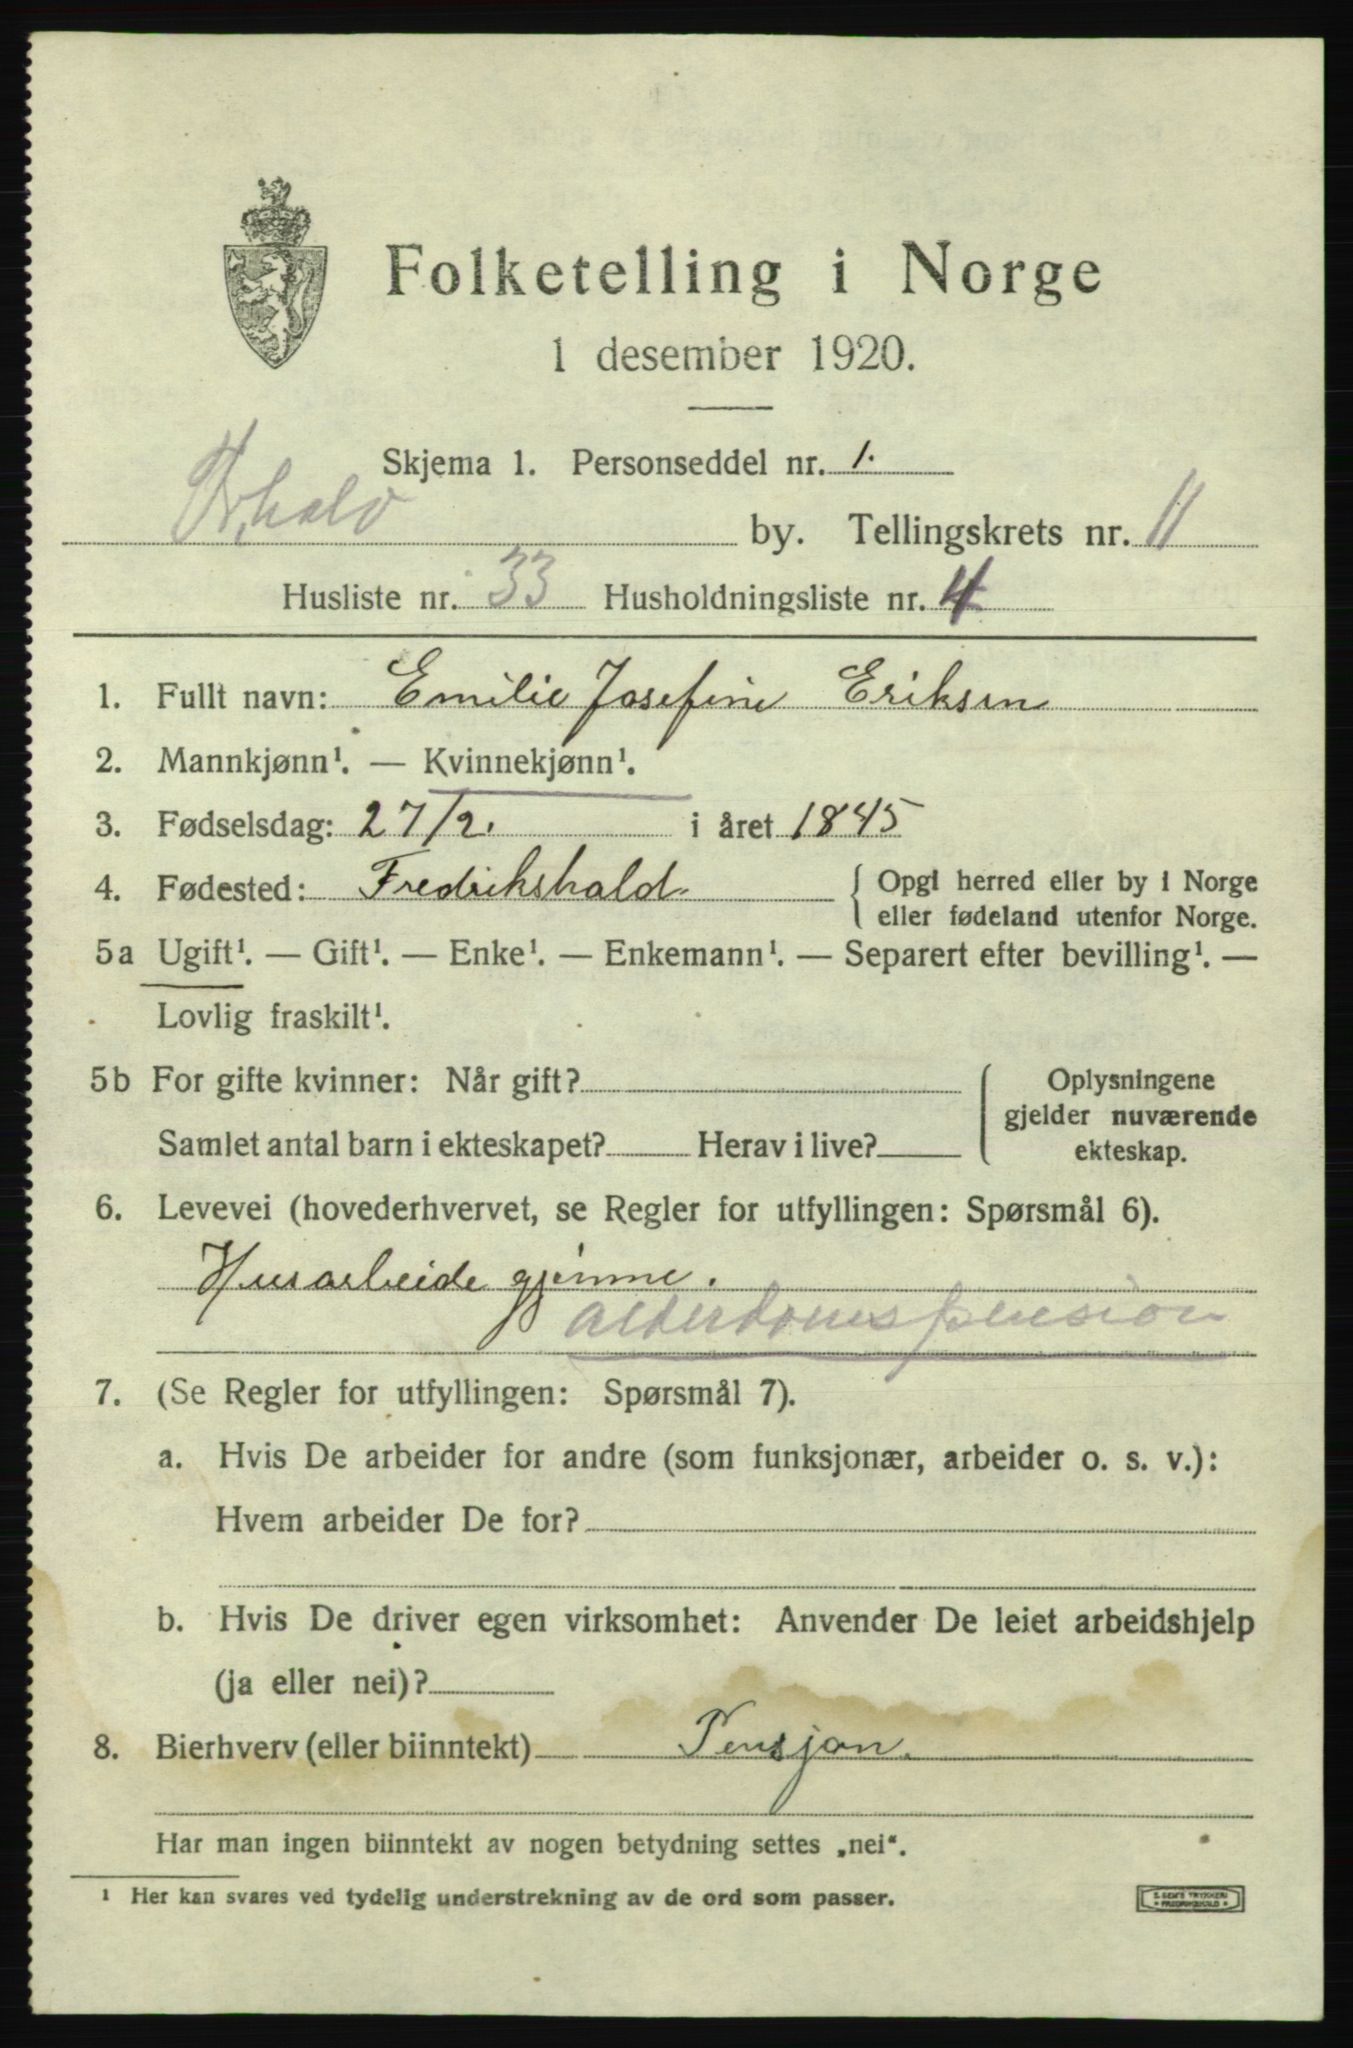 Folketelling i Norge
1 desember 1920.
Skjema 1. Personseddel nr. 1.
Fr.hald by. Tellingskrets nr. 11
Husliste nr. 33 Husholdningsliste nr. 4
1. Fullt navn: Emilie Josefine Eriksen
2. Mannkjønn¹. — Kvinnekjønn¹.
3. Fødselsdag: 27/2. i året 1845
4. Fødested: Fredrikshald. { Opgi herred eller by i Norge
eller fødeland utenfor Norge.
5a Ugift¹. — Gift¹. — Enke¹. — Enkemann¹. — Separert efter bevilling¹. —
Lovlig fraskilt¹.
5b For gifte kvinner: Når gift? { Oplysningene
gjelder nuværende
Samlet antal barn i ekteskapet? Herav i live? ekteskap.
6. Levevei (hovederhvervet, se Regler for utfyllingen: Spørsmål 6).
Husarbeide gjemme.
alderdomspension
7. (Se Regler for utfyllingen: Spørsmål 7).
a. Hvis De arbeider for andre (som funksjonær, arbeider o. s. v.):
Hvem arbeider De for?
b. Hvis De driver egen virksomhet: Anvender De leiet arbeidshjelp
(ja eller nei)?
8. Bierhverv (eller biinntekt) Pensjon.
Har man ingen biinntekt av nogen betydning settes „nei“.
¹ Her kan svares ved tydelig understrekning av de ord som passer.
TRYKKERI
FREDRIKSHALD